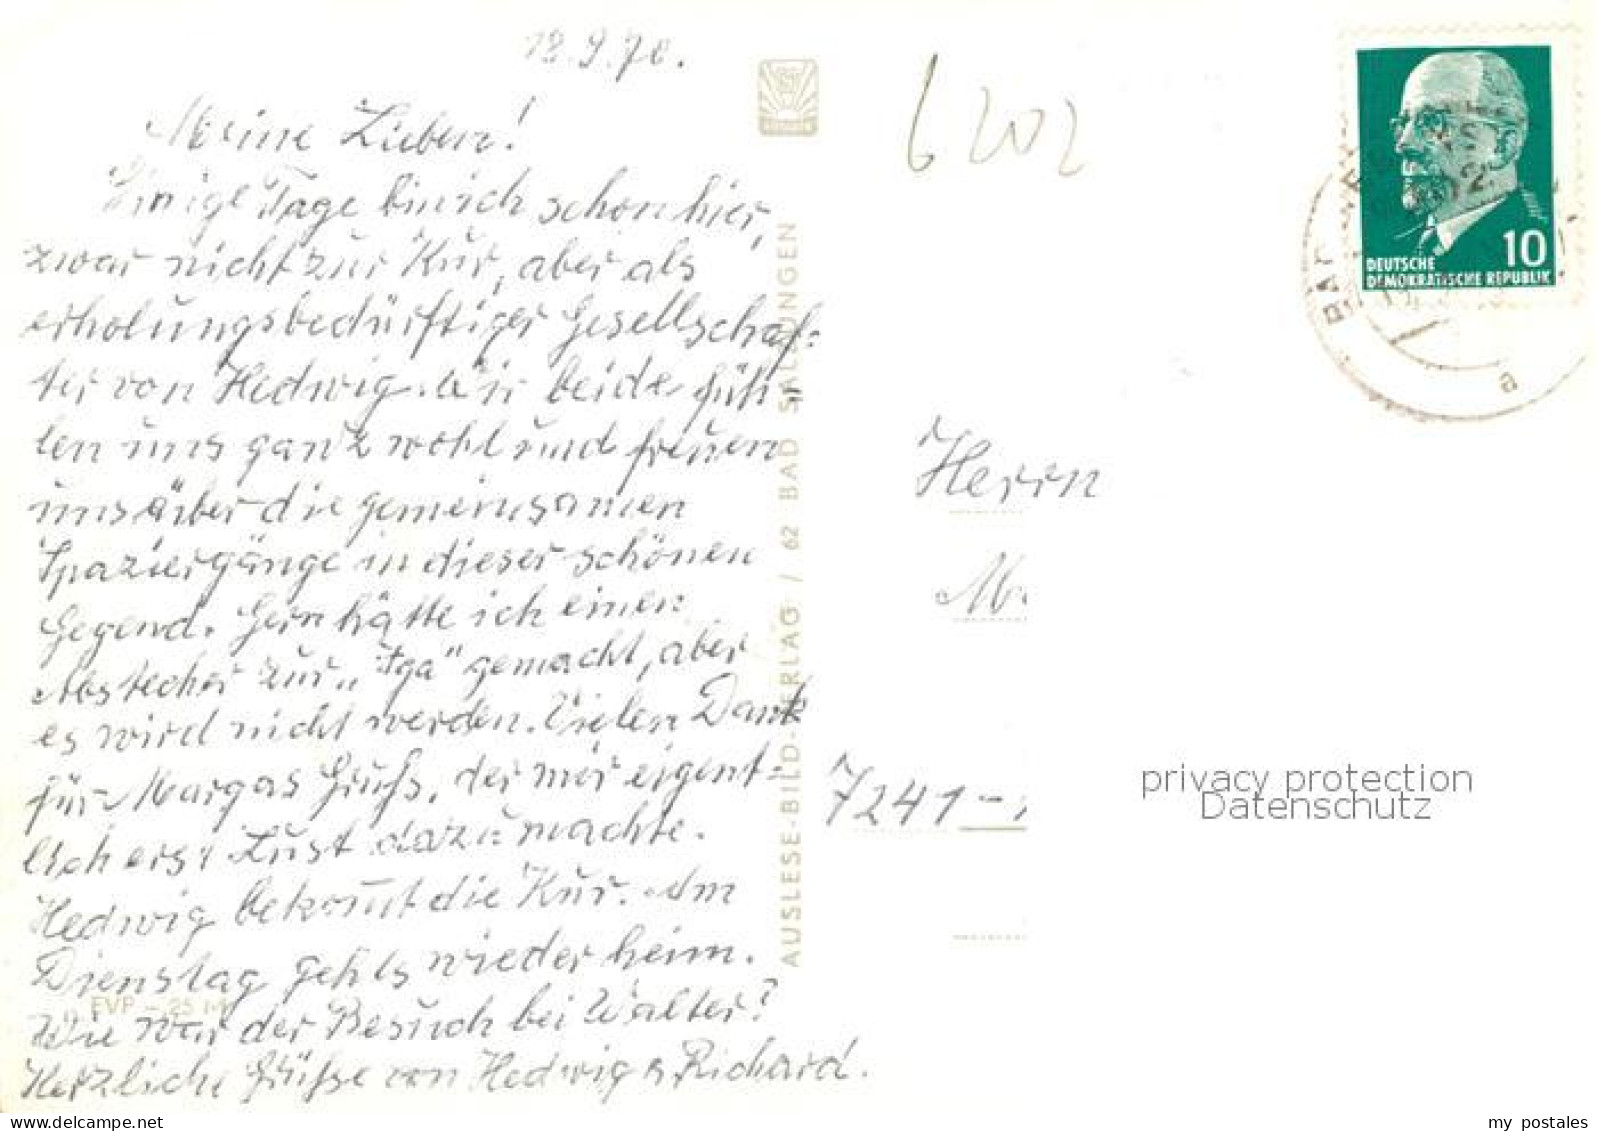 19.9.70.
Meine Lieben!
Einige Tage bin ich schon hier,
zwar nicht zur Kur, aber als
erholungsbedürftiger Gesellschaf=
ter von Hedwig. Wir beide füh=
len uns ganz wohl und freuen
uns über die gemeinsamen
Spaziergänge in dieser schönen
Gegend. Gern hätte ich einen
Abstecher zur „Iga" gemacht, aber
es wird nicht werden. Vielen Dank
für Margas Gruß, der mir eigent=
lich erst Lust dazu machte.
Hedwig bekommt die Kur. Am
Dienstag gehts wieder heim.
Wie war der Besuch bei Walter?
Herzliche Grüße von Hedwig & Richard.
EVP – 25 M
AUSLESE-BILD-VERLAG / 62 BAD SALZUNGEN
6202
10
DEUTSCHE
DEMOKRATISCHE REPUBLIK
BAD
a
Herrn
M
7241-
privacy protection
Datenschutz
my postales